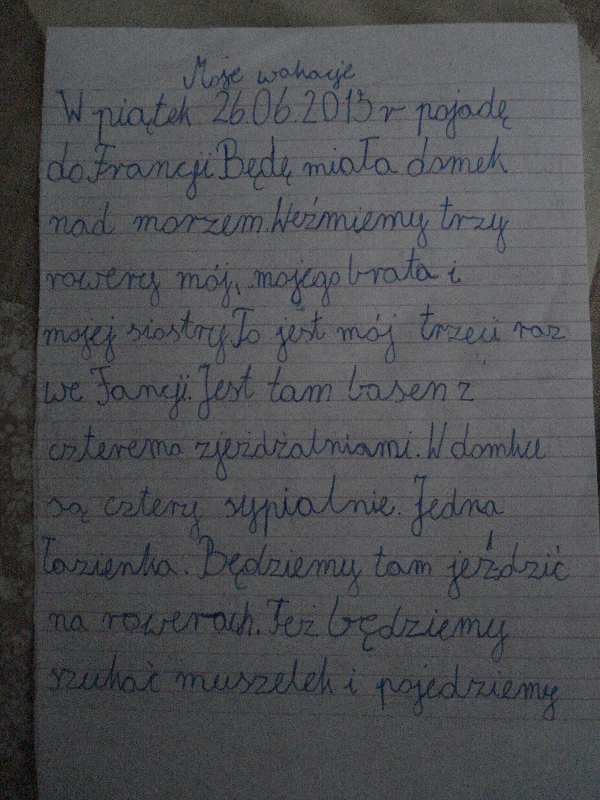 Moje wakacje
W piątek 26.06.2015 r pojadę
do Francji Będę miała domek
nad morzem. Weźmiemy trzy
rowery mój, mojego brata i
mojej siostry. To jest mój trzeci raz
we Fancji. Jest tam basen z
czterema zjeżdżalniami. W domku
są cztery sypialnie. Jedna
łazienka. Będziemy tam jeździć
na rowerach. Też będziemy
szukać muszelek i pojedziemy